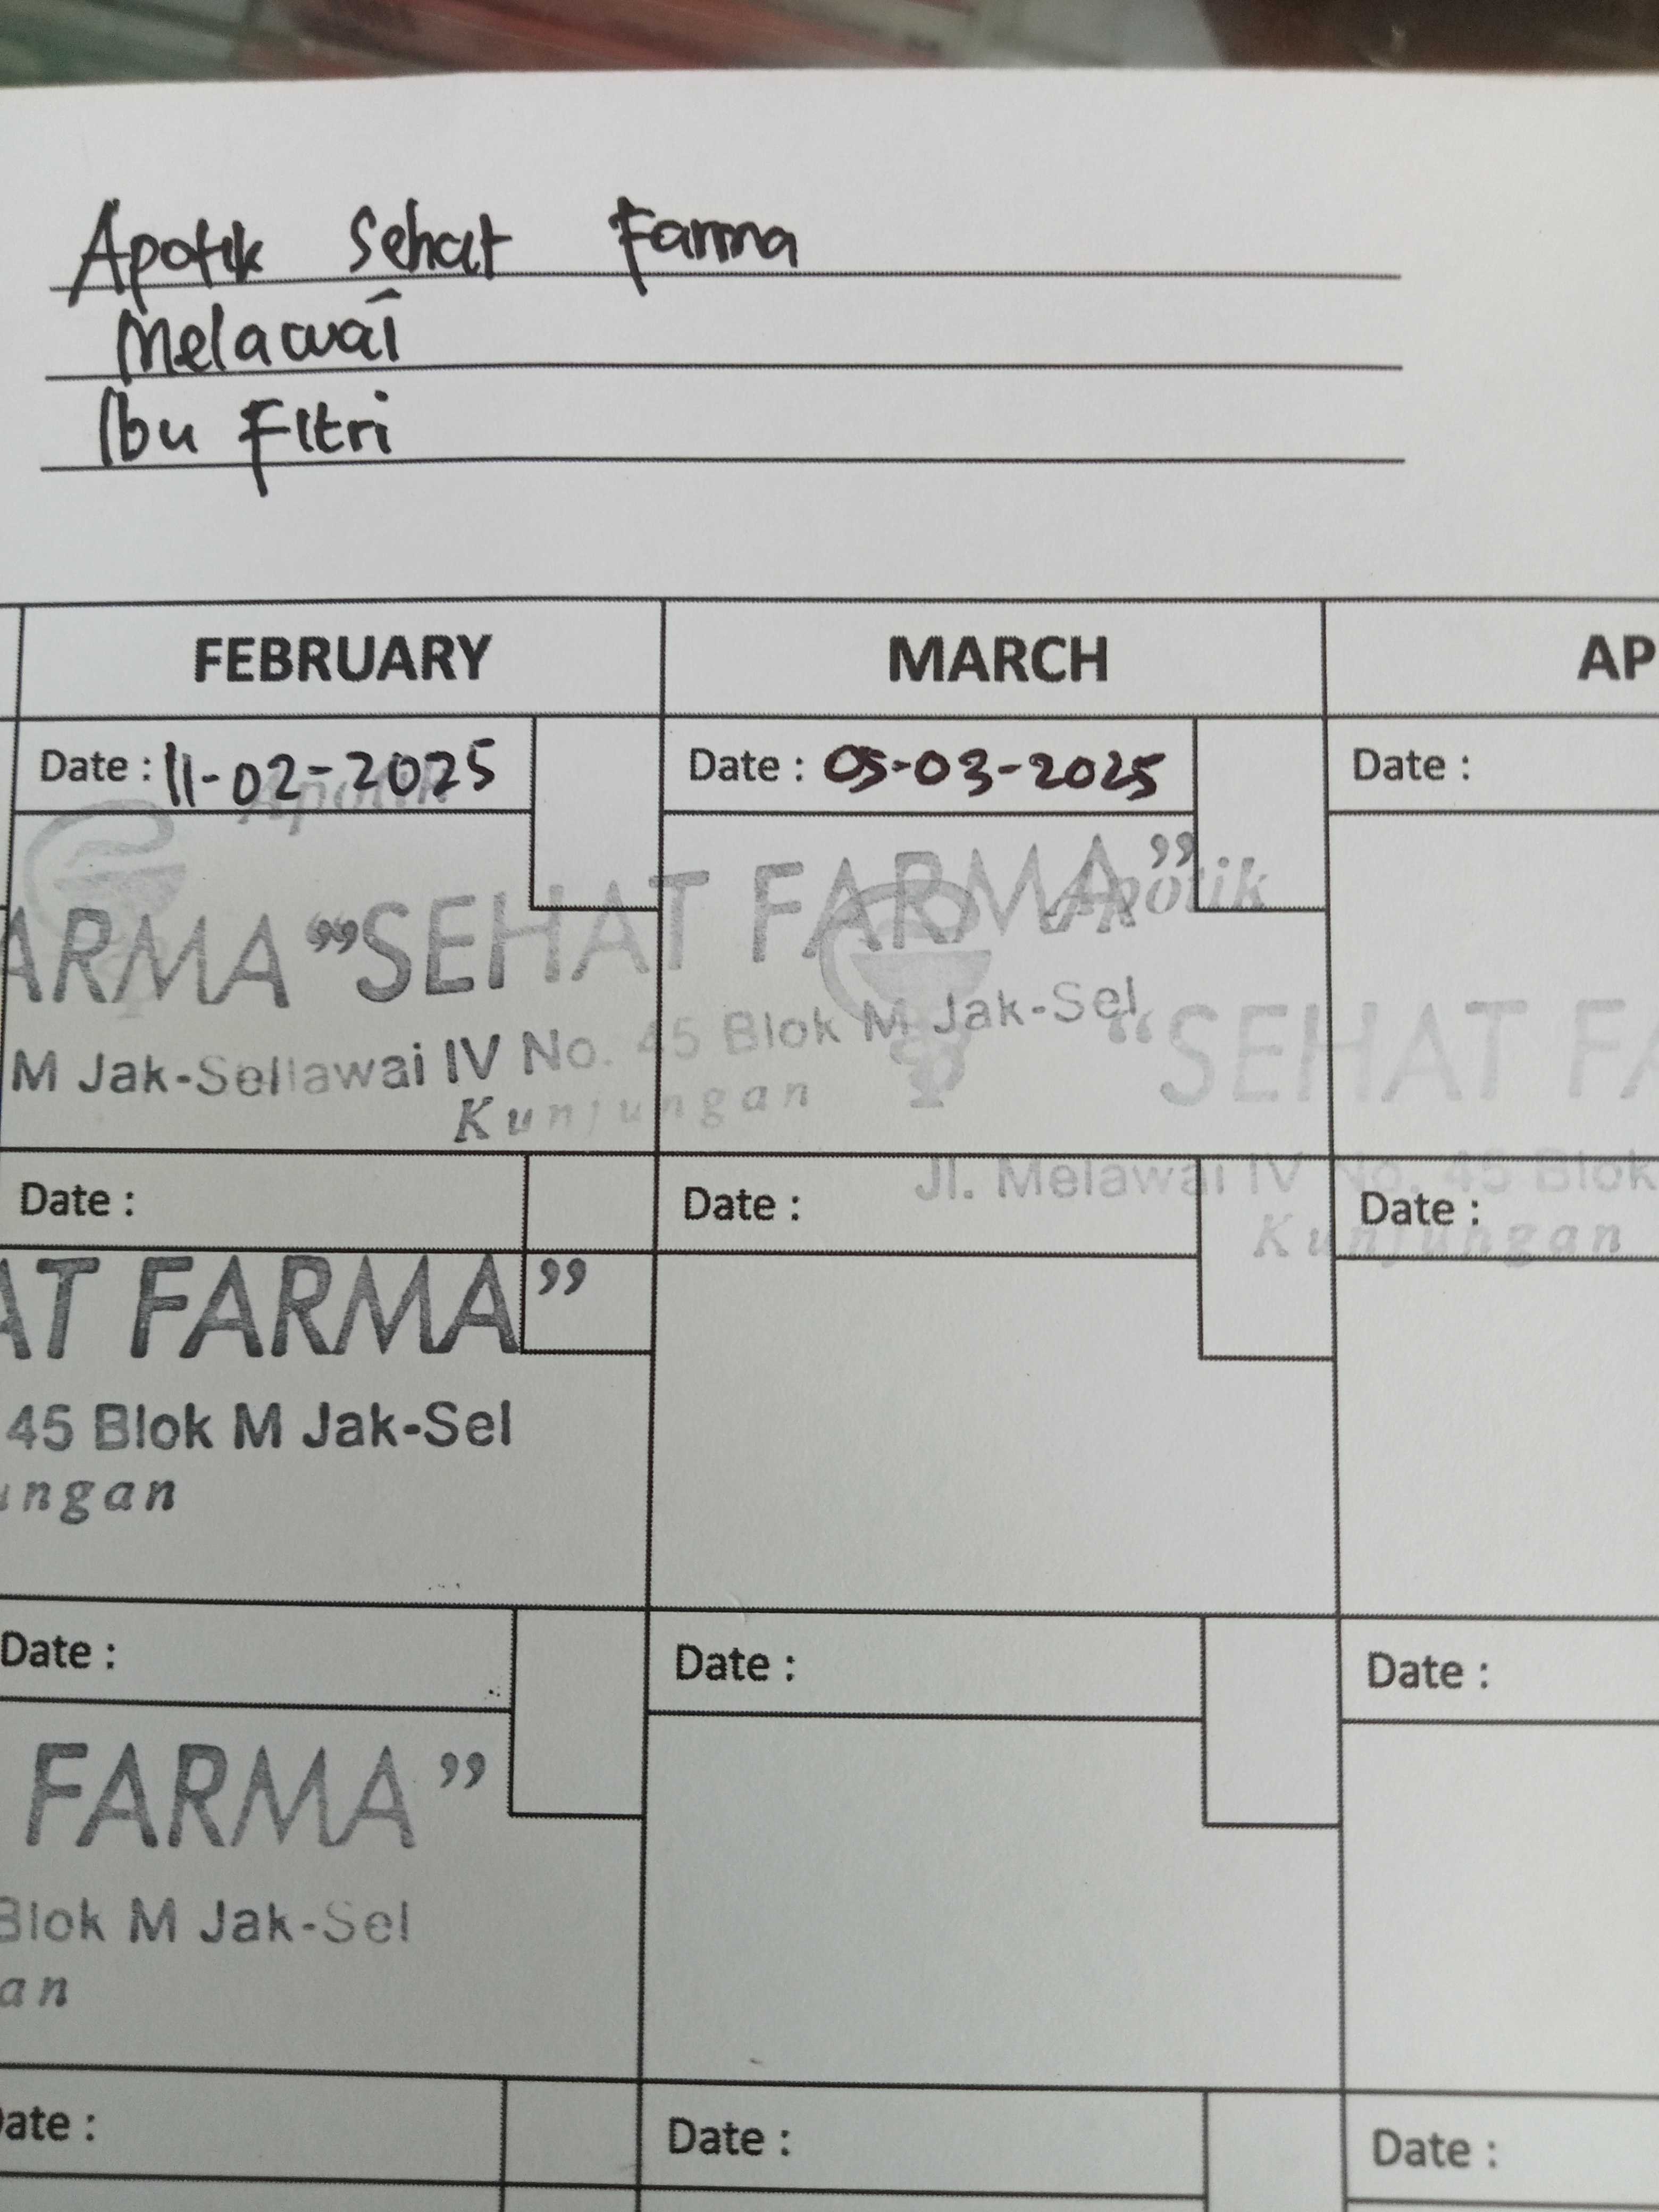 Apotik Sehat Farma
Melawai
Ibu Fitri
FEBRUARY MARCH AP
Date : 11-02-2025 Date : 05-03-2025 Date :
Apotik
ARMA” SEHAT FARMA” Apotik
M Jak-Sel lawai IV No. 45 Blok M Jak-Sel “SEHAT FA
Kunjungan
Jl. Melawai IV No. 45 Blok
Date : Date : Date :
Kunjungan
AT FARMA”
45 Blok M Jak-Sel
ungan
Date : Date : Date :
FARMA”
Blok M Jak-Sel
an
Date : Date : Date :